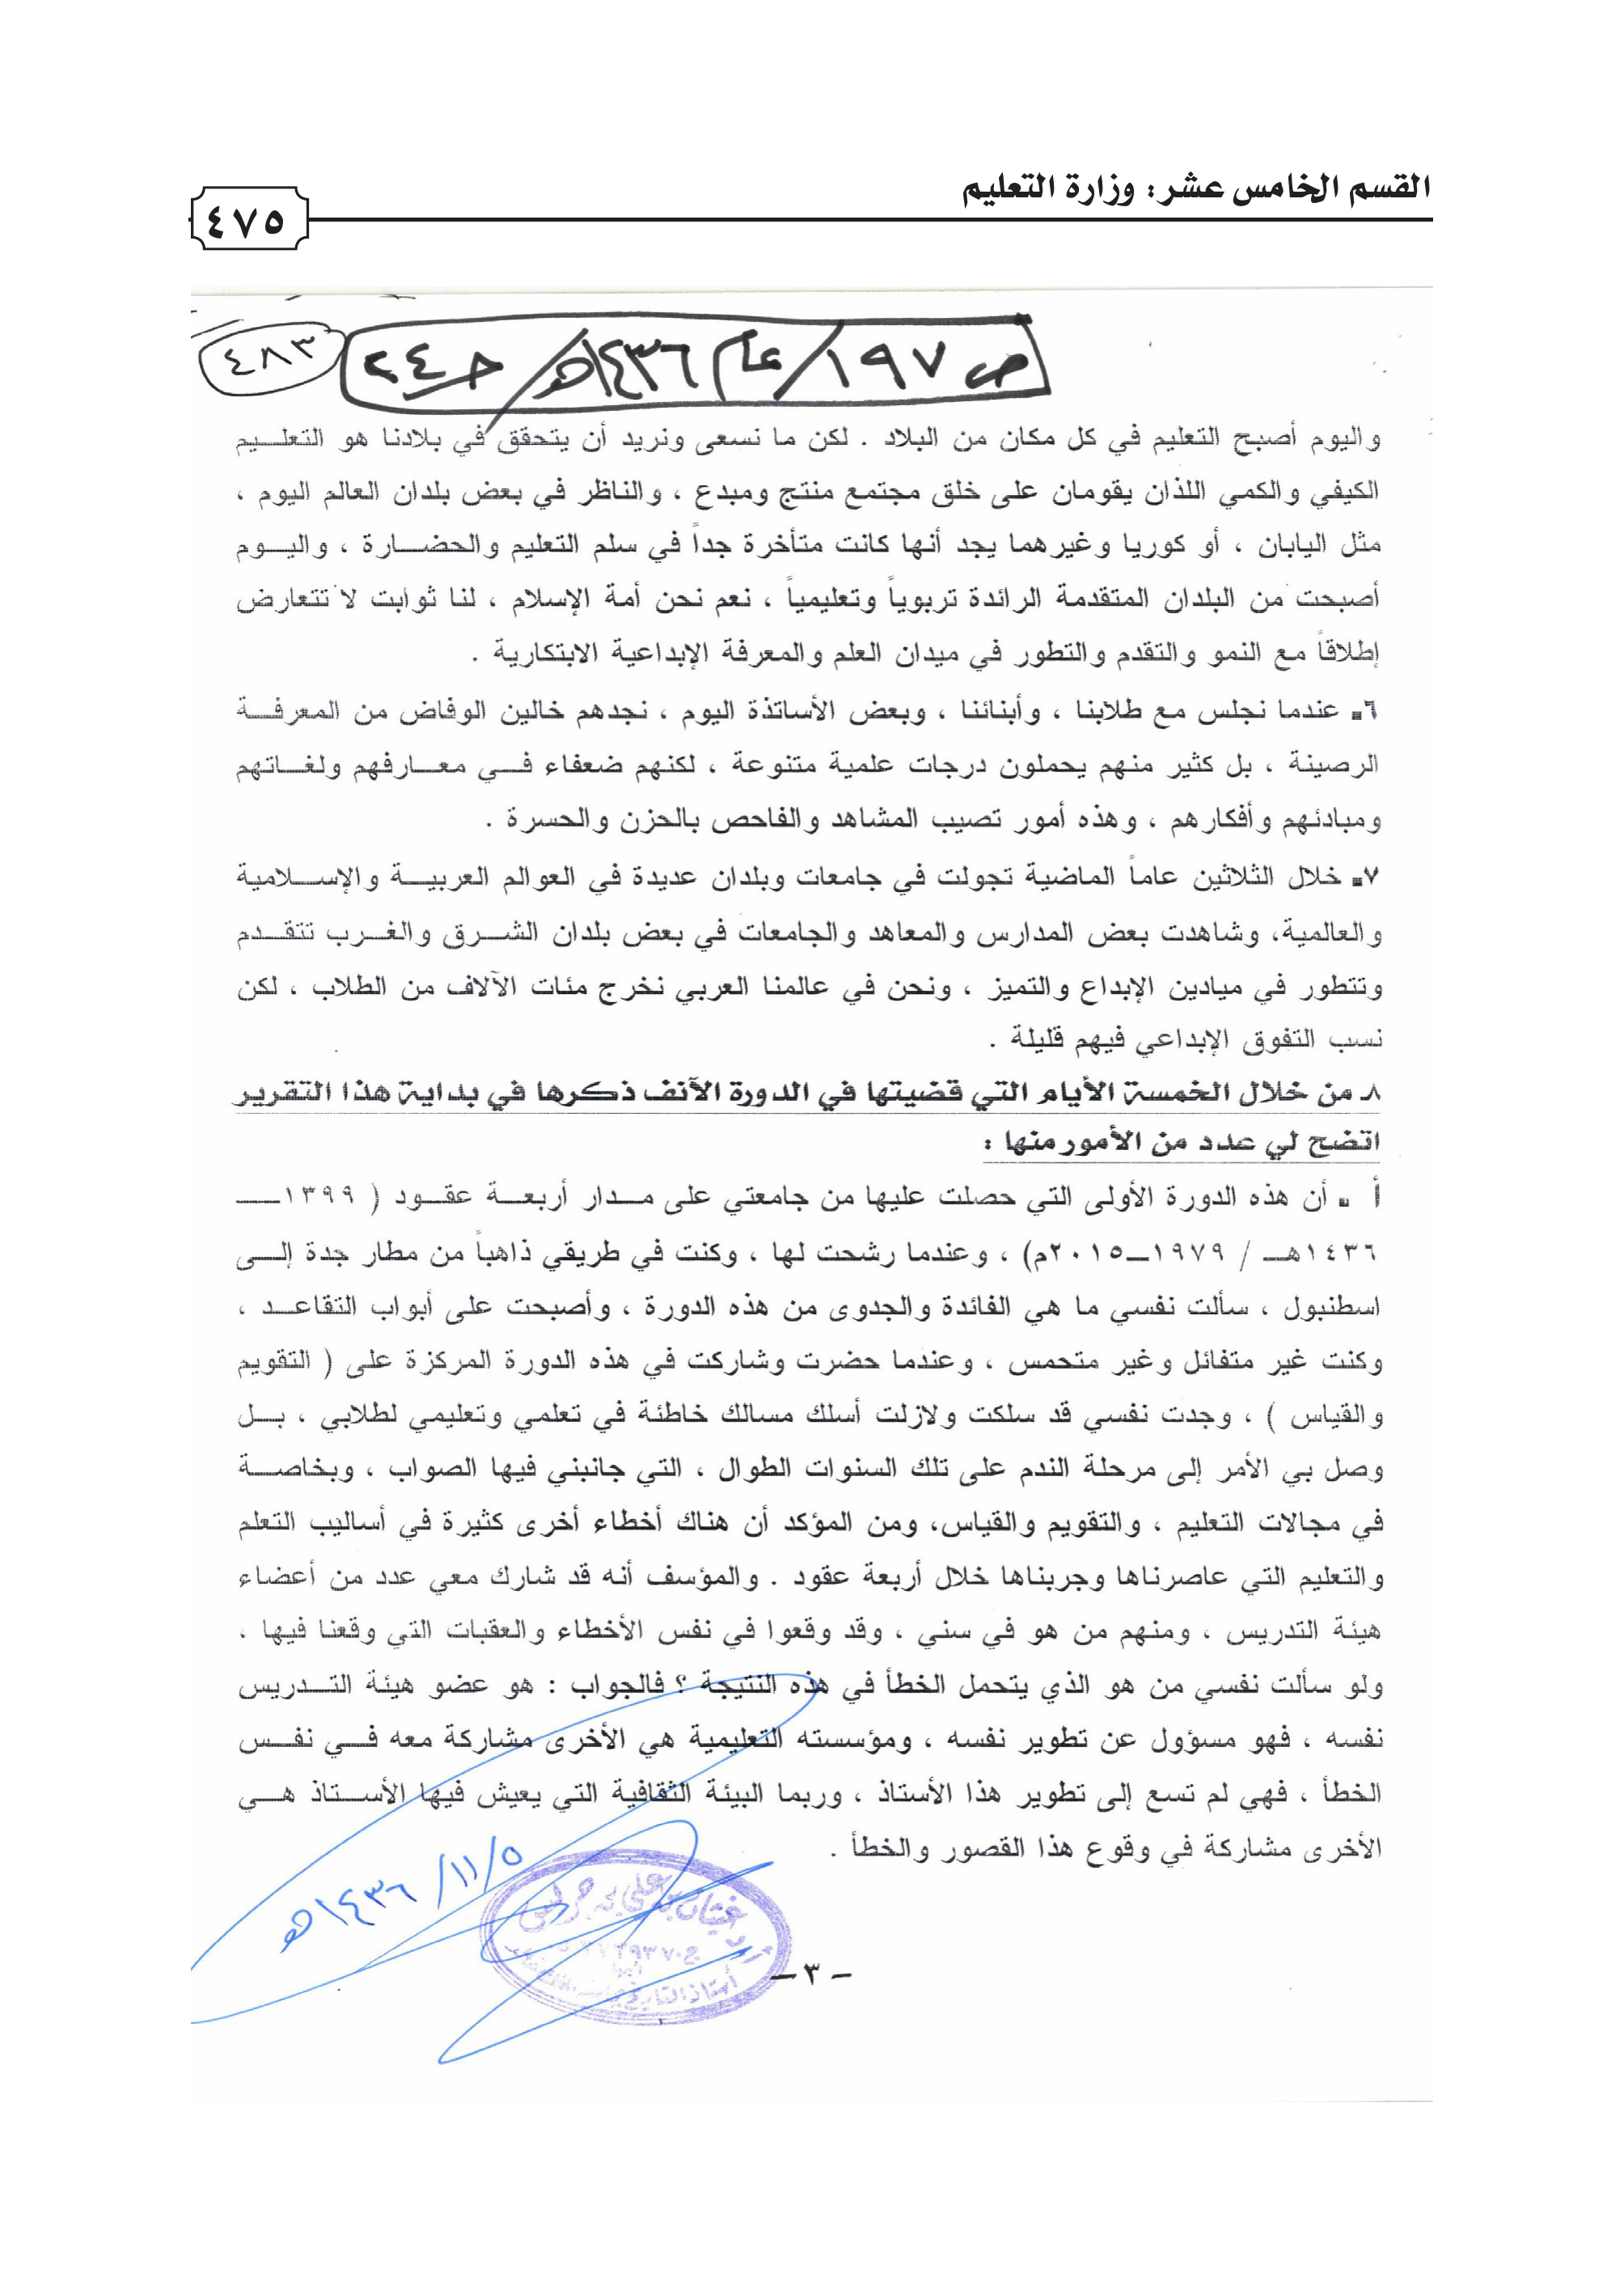 القسم الخامس عشر: وزارة التعليم
٤٧٥
ص ١٩٧/ عام ١٤٣٦هـ/ ح ٢٤
٤٨٣
واليوم أصبح التعليم في كل مكان من البلاد . لكن ما نسعى ونريد أن يتحقق في بلادنا هو التعليم
الكيفي والكمي اللذان يقومان على خلق مجتمع منتج ومبدع ، والناظر في بعض بلدان العالم اليوم ،
مثل اليابان ، أو كوريا وغيرهما يجد أنها كانت متأخرة جداً في سلم التعليم والحضارة ، واليوم
أصبحت من البلدان المتقدمة الرائدة تربوياً وتعليمياً ، نعم نحن أمة الإسلام ، لنا ثوابت لا تتعارض
إطلاقاً مع النمو والتقدم والتطور في ميدان العلم والمعرفة الإبداعية الابتكارية .
٦ـ عندما نجلس مع طلابنا ، وأبنائنا ، وبعض الأساتذة اليوم ، نجدهم خالين الوفاض من المعرفة
الرصينة ، بل كثير منهم يحملون درجات علمية متنوعة ، لكنهم ضعفاء في معارفهم ولغاتهم
ومبادئهم وأفكارهم ، وهذه أمور تصيب المشاهد والفاحص بالحزن والحسرة .
٧ـ خلال الثلاثين عاماً الماضية تجولت في جامعات وبلدان عديدة في العوالم العربية والإسلامية
والعالمية، وشاهدت بعض المدارس والمعاهد والجامعات في بعض بلدان الشرق والغرب تتقدم
وتتطور في ميادين الإبداع والتميز ، ونحن في عالمنا العربي نخرج مئات الآلاف من الطلاب ، لكن
نسب التفوق الإبداعي فيهم قليلة .
٨ـ من خلال الخمسة الأيام التي قضيتها في الدورة الآنف ذكرها في بداية هذا التقرير
اتضح لي عدد من الأمور منها :
أ ـ أن هذه الدورة الأولى التي حصلت عليها من جامعتي على مدار أربعة عقود ( ١٣٩٩ــ
١٤٣٦هـ / ١٩٧٩ــ٢٠١٥م) ، وعندما رشحت لها ، وكنت في طريقي ذاهباً من مطار جدة إلى
اسطنبول ، سألت نفسي ما هي الفائدة والجدوى من هذه الدورة ، وأصبحت على أبواب التقاعد ،
وكنت غير متفائل وغير متحمس ، وعندما حضرت وشاركت في هذه الدورة المركزة على ( التقويم
والقياس ) ، وجدت نفسي قد سلكت ولازلت أسلك مسالك خاطئة في تعلمي وتعليمي لطلابي ، بل
وصل بي الأمر إلى مرحلة الندم على تلك السنوات الطوال ، التي جانبني فيها الصواب ، وبخاصة
في مجالات التعليم ، والتقويم والقياس، ومن المؤكد أن هناك أخطاء أخرى كثيرة في أساليب التعلم
والتعليم التي عاصرناها وجربناها خلال أربعة عقود . والمؤسف أنه قد شارك معي عدد من أعضاء
هيئة التدريس ، ومنهم من هو في سني ، وقد وقعوا في نفس الأخطاء والعقبات التي وقعنا فيها ،
ولو سألت نفسي من هو الذي يتحمل الخطأ في هذه النتيجة ؟ فالجواب : هو عضو هيئة التدريس
نفسه ، فهو مسؤول عن تطوير نفسه ، ومؤسسته التعليمية هي الأخرى مشاركة معه في نفس
الخطأ ، فهي لم تسع إلى تطوير هذا الأستاذ ، وربما البيئة الثقافية التي يعيش فيها الأستاذ هي
الأخرى مشاركة في وقوع هذا القصور والخطأ .
١٤٣٦/١١/٥هـ
غيثان بن علي بن جريس
ـ ٣ ـ